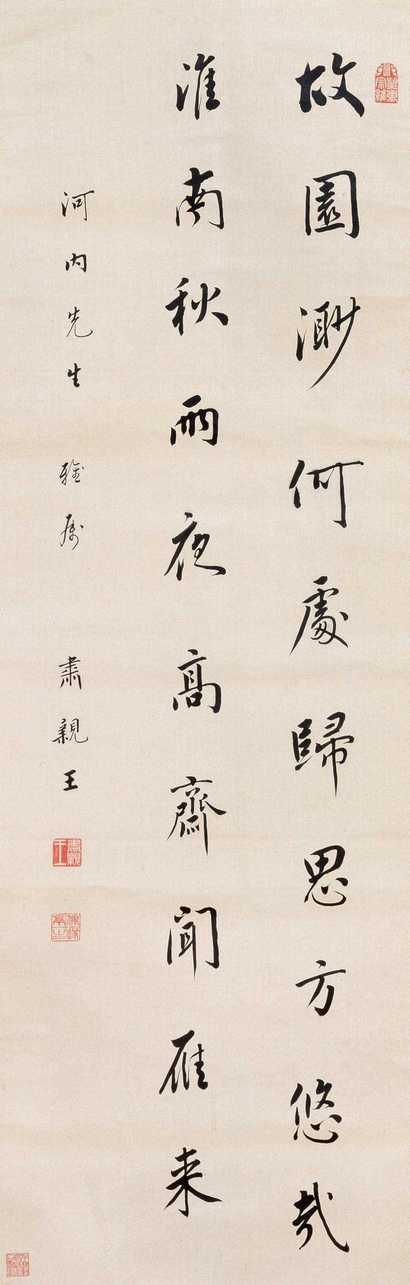 故園渺何處歸思方悠哉
淮南秋雨夜高齋聞雁来
河内先生 雅属 肅親王